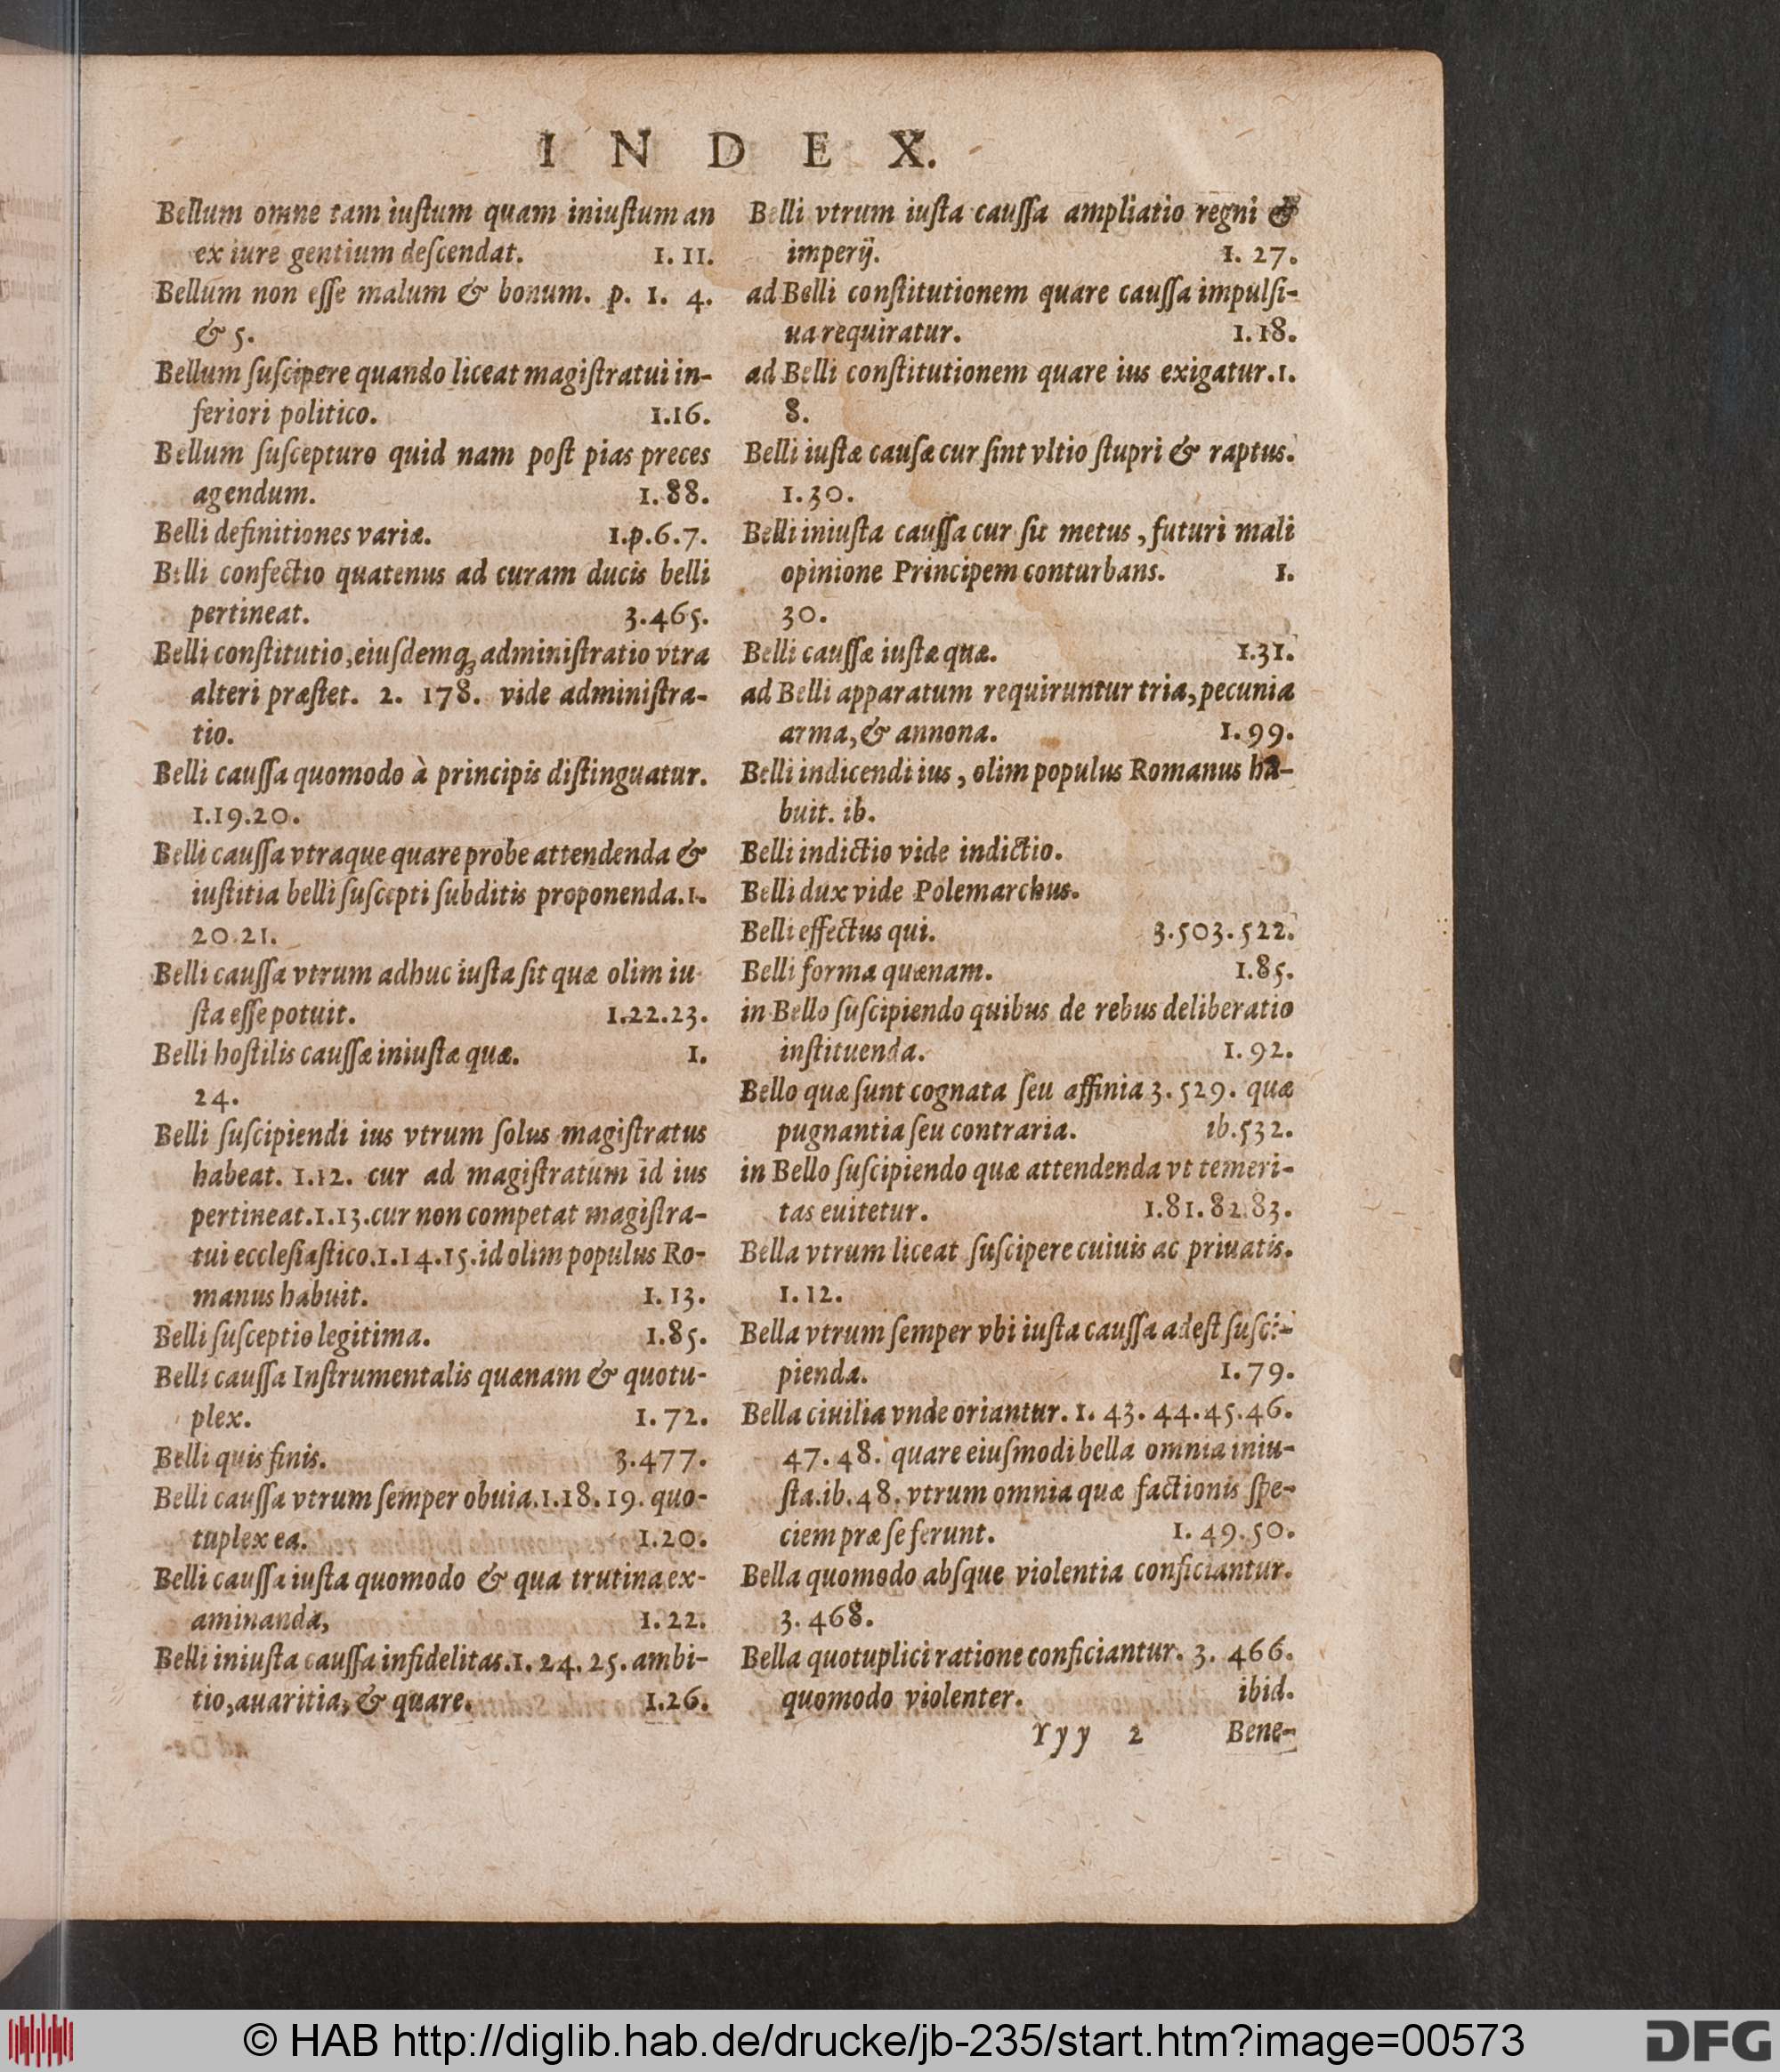 INDEX.
Bellum omne tam iuſtum quam iniuſtum an
ex iure gentium deſcendat. 1. 11.
Bellum non eſſe malum & bonum. p. 1. 4.
& 5.
Bellum ſuſcipere quando liceat magiſtratui in-
feriori politico. 1.16.
Bellum ſuſcepturo quid nam poſt pias preces
agendum. 1.88.
Belli definitiones variæ. 1.p.6.7.
Belli confectio quatenus ad curam ducis belli
pertineat. 3.465.
Belli conſtitutio, eiuſdemq; adminiſtratio vtra
alteri præſtet. 2. 178. vide adminiſtra-
tio.
Belli cauſſa quomodo à principis diſtinguatur.
1.19.20.
Belli cauſſa vtraque quare probe attendenda &
iuſtitia belli ſuſcepti ſubditis proponenda.1.
20.21.
Belli cauſſa vtrum adhuc iuſta ſit quæ olim iu
ſta eſſe potuit. 1.22.23.
Belli hoſtilis cauſſæ iniuſtæ quæ. 1.
24.
Belli ſuſcipiendi ius vtrum ſolus magiſtratus
habeat. 1.12. cur ad magiſtratum id ius
pertineat.1.13.cur non competat magiſtra-
tui eccleſiaſtico.1.14.15.id olim populus Ro-
manus habuit. 1.13.
Belli ſuſceptio legitima. 1.85.
Belli cauſſa Inſtrumentalis quænam & quotu-
plex. 1.72.
Belli quis finis. 3.477.
Belli cauſſa vtrum ſemper obuia.1.18.19. quo-
tuplex ea. 1.20.
Belli cauſſa iuſta quomodo & qua trutina ex-
aminanda, 1.22.
Belli iniuſta cauſſa infidelitas.1.24.25.ambi-
tio,auaritia, & quare. 1.26.
Belli vtrum iuſta cauſſa ampliatio regni &
imperij. 1. 27.
ad Belli conſtitutionem quare cauſſa impulſi-
ua requiratur. 1.18.
ad Belli conſtitutionem quare ius exigatur.1.
8.
Belli iuſtæ cauſæ cur ſint vltio ſtupri & raptus.
1.30.
Belli iniuſta cauſſa cur ſit metus, futuri mali
opinione Principem conturbans. 1.
30.
Belli cauſſæ iuſtæ quæ. 1.31.
ad Belli apparatum requiruntur tria,pecunia
arma,& annona. 1.99.
Belli indicendi ius, olim populus Romanus ha-
buit. ib.
Belli indictio vide indictio.
Belli dux vide Polemarchus.
Belli effectus qui. 3.503.522.
Belli forma quænam. 1.85.
in Bello ſuſcipiendo quibus de rebus deliberatio
inſtituenda. 1.92.
Bello quæ ſunt cognata ſeu affinia 3.529. quæ
pugnantia ſeu contraria. ib.532.
in Bello ſuſcipiendo quæ attendenda vt temeri-
tas euitetur. 1.81.82.83.
Bella vtrum liceat ſuſcipere cuiuis ac priuatis.
1.12.
Bella vtrum ſemper vbi iuſta cauſſa adeſt ſuſci-
pienda. 1.79.
Bella ciuilia vnde oriantur. 1. 43. 44.45.46.
47.48. quare eiuſmodi bella omnia iniu-
ſta.ib.48. vtrum omnia quæ factionis ſpe-
ciem præ ſe ferunt. 1. 49.50.
Bella quomodo abſque violentia conficiantur.
3. 468.
Bella quotuplici ratione conficiantur. 3. 466.
quomodo violenter. ibid.
Yyy 2 Bene-
© HAB http://diglib.hab.de/drucke/jb-235/start.htm?image=00573
DFG